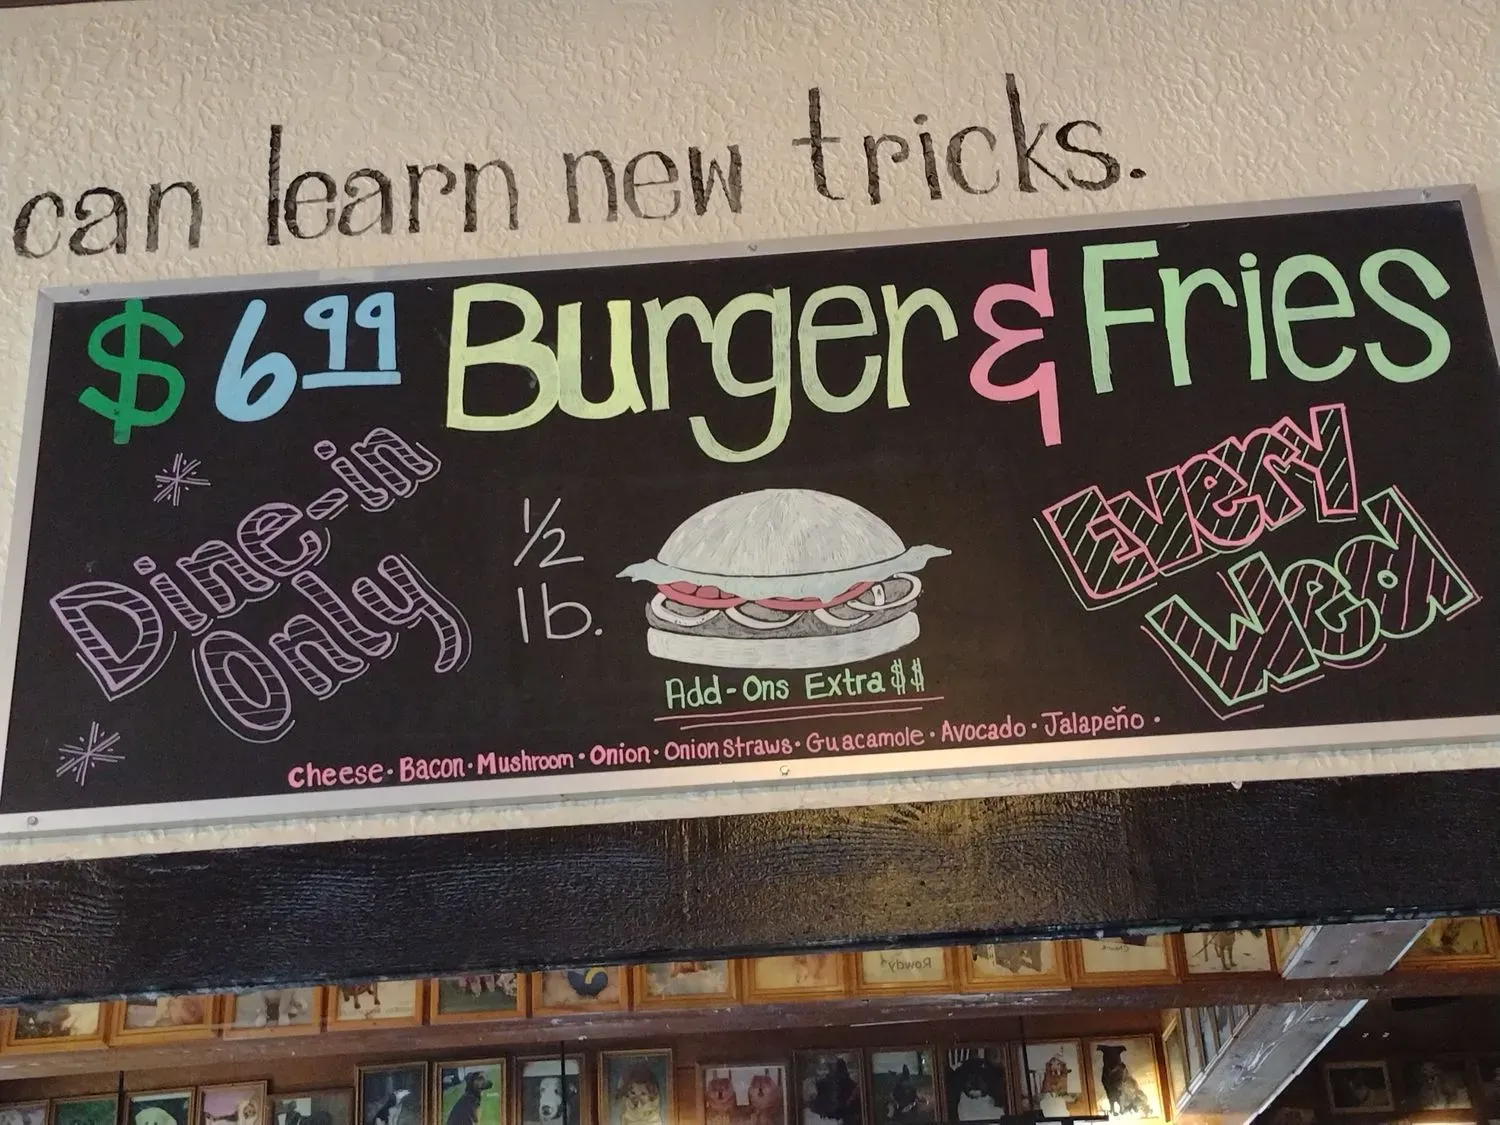 can learn new tricks.
$6.99 Burger & Fries
Dine-in
Only
1/2
lb.
Every
Wed
Add-Ons Extra $$
Cheese · Bacon · Mushroom · Onion · Onion Straws · Guacamole · Avocado · Jalapeňo ·
Rowdy